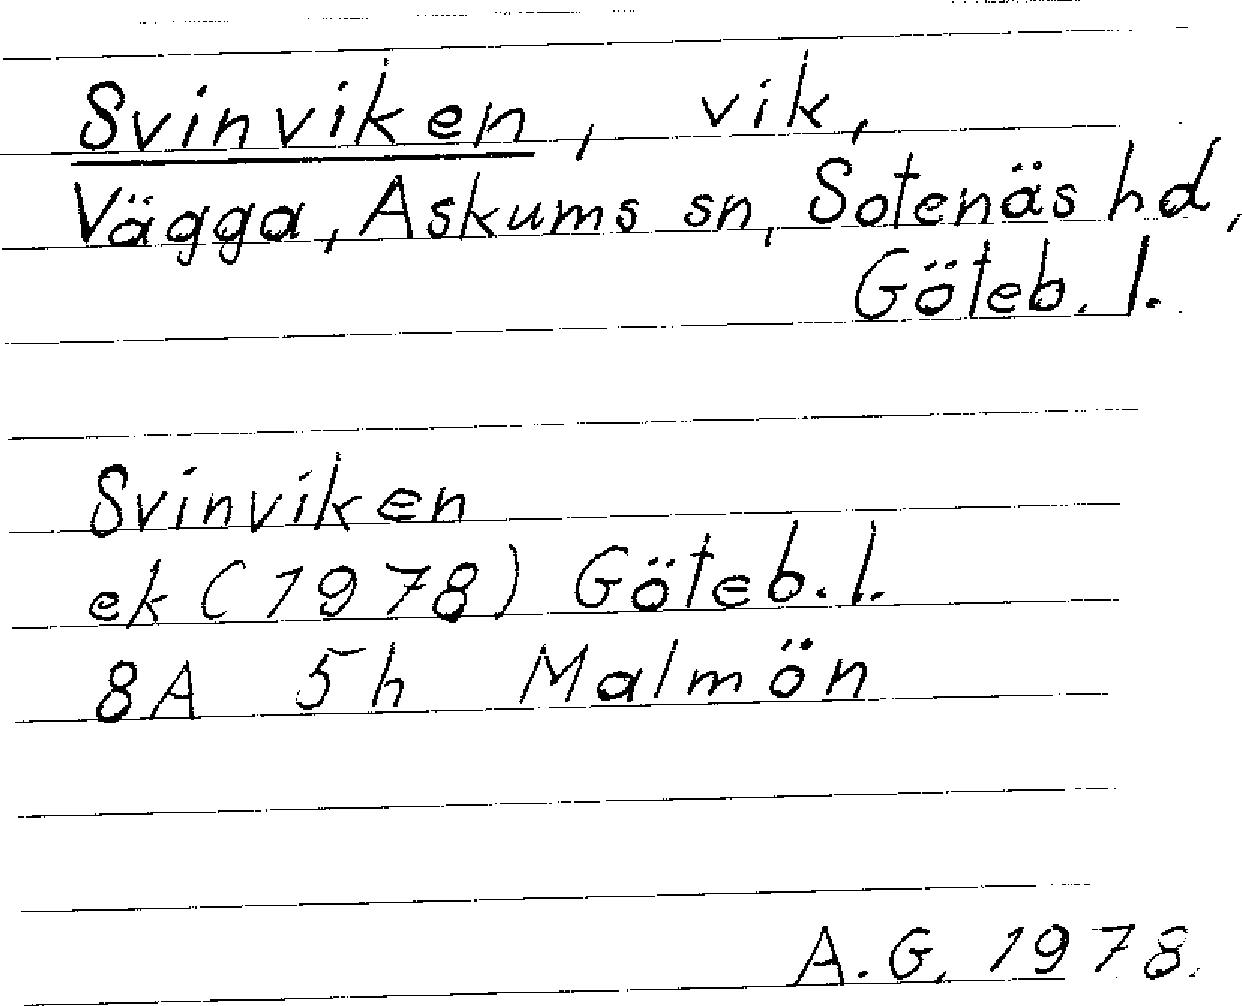 Svinviken, vik,
Vägga, Askums sn, Sotenäs hd,
Göteb. l.
Svinviken
ek (1978) Göteb. l.
8A 5h Malmön
A. G. 1978.